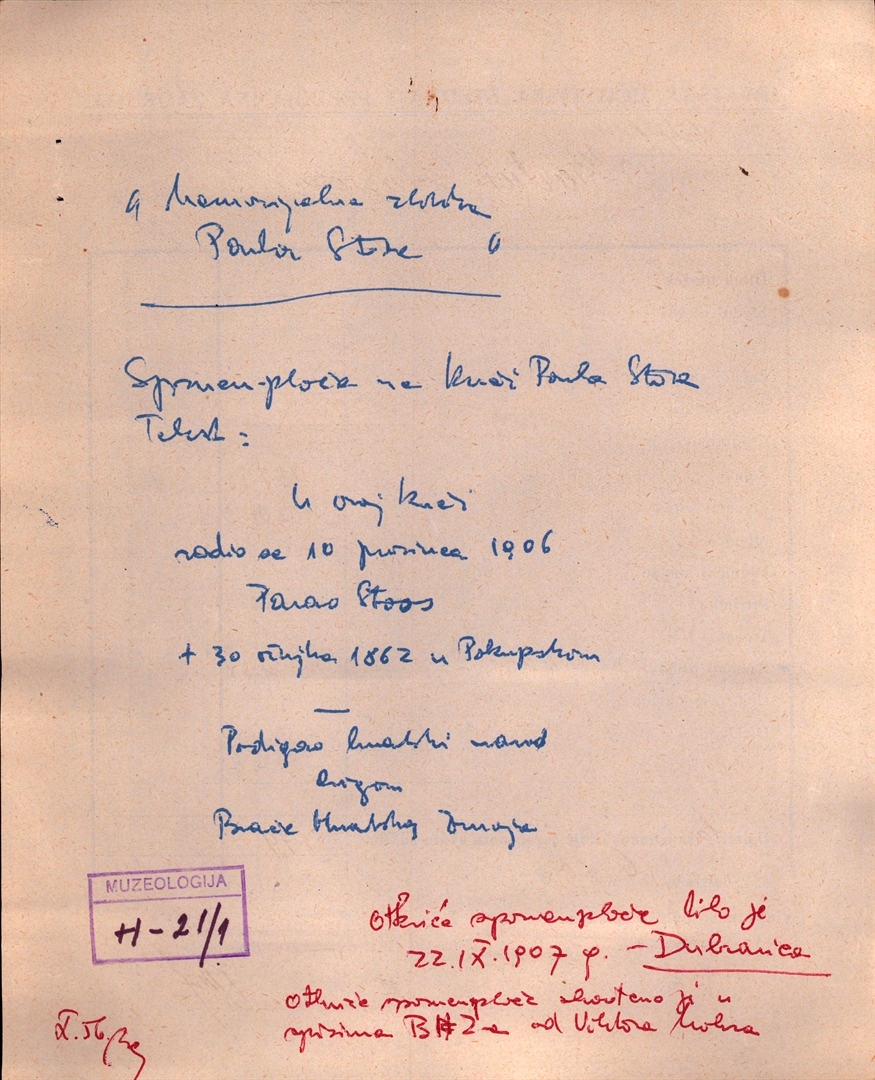 " Memorijalna zbirka
Pavla Štosa "
Spomen-ploča na kući Pavla Štosa
Tekst:
U ovoj kući
rodio se 10 prosinca 1906
Pavao Stoos
+ 30 ožujka 1862 u Pokupskom
—
Podigao hrvatski narod
brigom
Braće Hrvatskog Zmaja
MUZEOLOGIJA
H-21/1
Otkriće spomenploče bilo je
22.IX.1907 g. - Dubravica
Otkriće spomenploče je u
spisima BHZ-a od Viktora
X.56.